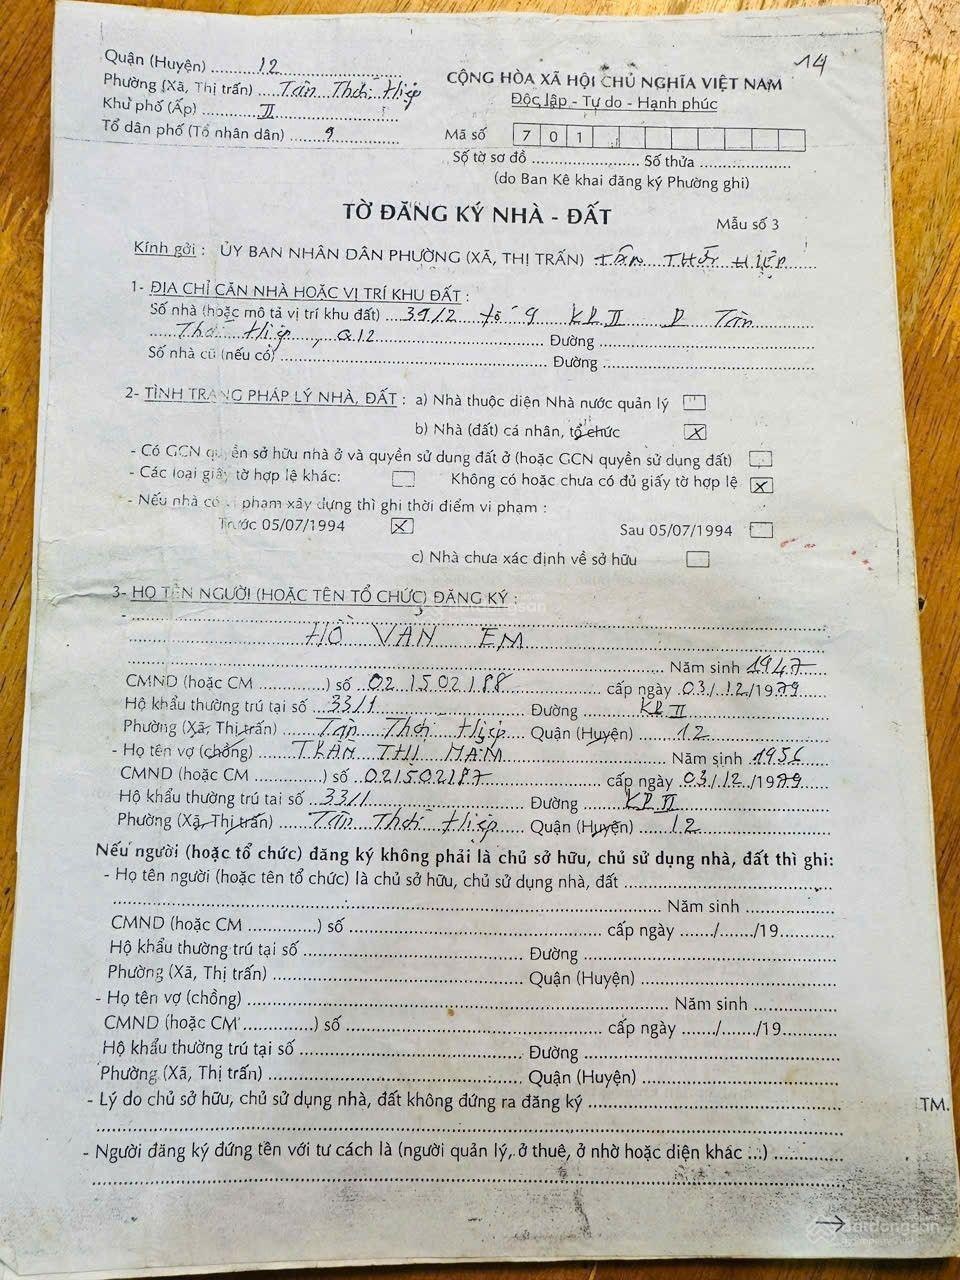 14
Quận (Huyện) ......12......
Phường (Xã, Thị trấn) ...Tân Thới Hiệp
Khu phố (Ấp) ......II......
Tổ dân phố (Tổ nhân dân) ......9......
CỘNG HÒA XÃ HỘI CHỦ NGHĨA VIỆT NAM
Độc lập - Tự do - Hạnh phúc
Mã số 7 0 1
Số tờ sơ đồ ........................ Số thửa ....................
(do Ban Kê khai đăng ký Phường ghi)
TỜ ĐĂNG KÝ NHÀ - ĐẤT
Mẫu số 3
Kính gởi : ỦY BAN NHÂN DÂN PHƯỜNG (XÃ, THỊ TRẤN) TÂN THỚI HIỆP
1- ĐỊA CHỈ CĂN NHÀ HOẶC VỊ TRÍ KHU ĐẤT :
Số nhà (hoặc mô tả vị trí khu đất) ...39/2 tổ 9 KP II P Tân
Thới Hiệp, Q12 ............ Đường ............
Số nhà cũ (nếu có) ............ Đường ............
2- TÌNH TRẠNG PHÁP LÝ NHÀ, ĐẤT : a) Nhà thuộc diện Nhà nước quản lý
b) Nhà (đất) cá nhân, tổ chức X
- Có GCN quyền sở hữu nhà ở và quyền sử dụng đất ở (hoặc GCN quyền sử dụng đất)
- Các loại giấy tờ hợp lệ khác: Không có hoặc chưa có đủ giấy tờ hợp lệ X
- Nếu nhà có vi phạm xây dựng thì ghi thời điểm vi phạm :
Trước 05/07/1994 X Sau 05/07/1994
c) Nhà chưa xác định về sở hữu
3- HỌ TÊN NGƯỜI (HOẶC TÊN TỔ CHỨC) ĐĂNG KÝ :
- ............
HỒ VĂN EM
............ Năm sinh 1947
CMND (hoặc CM ............) số ..021502188 ............ cấp ngày .03./.12./1979
Hộ khẩu thường trú tại số ...33/1 ............ Đường ......KP II......
Phường (Xã, Thị trấn) ...Tân Thới Hiệp ... Quận (Huyện) ......12......
- Họ tên vợ (chồng) ......TRẦN THỊ NĂM ............ Năm sinh .1956
CMND (hoặc CM ............) số ..021502187 ............ cấp ngày .03./.12./1979
Hộ khẩu thường trú tại số ...33/1 ............ Đường ......KP II......
Phường (Xã, Thị trấn) ...Tân Thới Hiệp ... Quận (Huyện) ......12......
Nếu người (hoặc tổ chức) đăng ký không phải là chủ sở hữu, chủ sử dụng nhà, đất thì ghi:
- Họ tên người (hoặc tên tổ chức) là chủ sở hữu, chủ sử dụng nhà, đất ............
............ Năm sinh ............
CMND (hoặc CM ............) số ............ cấp ngày ....../....../19......
Hộ khẩu thường trú tại số ............ Đường ............
Phường (Xã, Thị trấn) ............ Quận (Huyện) ............
- Họ tên vợ (chồng) ............ Năm sinh ............
CMND (hoặc CM ............) số ............ cấp ngày ....../....../19......
Hộ khẩu thường trú tại số ............ Đường ............
Phường (Xã, Thị trấn) ............ Quận (Huyện) ............
- Lý do chủ sở hữu, chủ sử dụng nhà, đất không đứng ra đăng ký ............
TM.
- Người đăng ký đứng tên với tư cách là (người quản lý, ở thuê, ở nhờ hoặc diện khác ...) ............
batdongsan